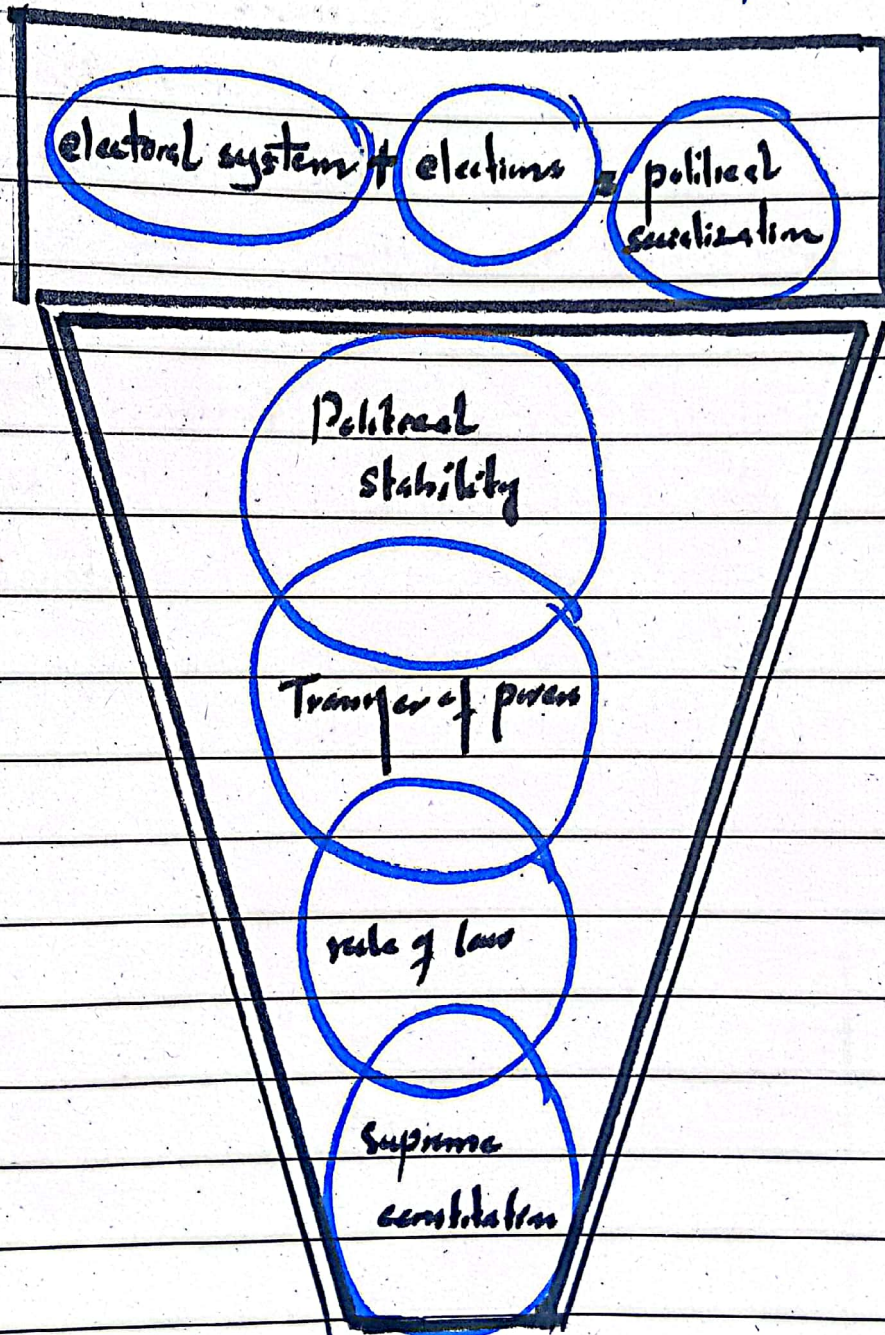 electoral system + elections = political
socialization
Political
stability
Transfer of power
rule of law
Supreme
constitution